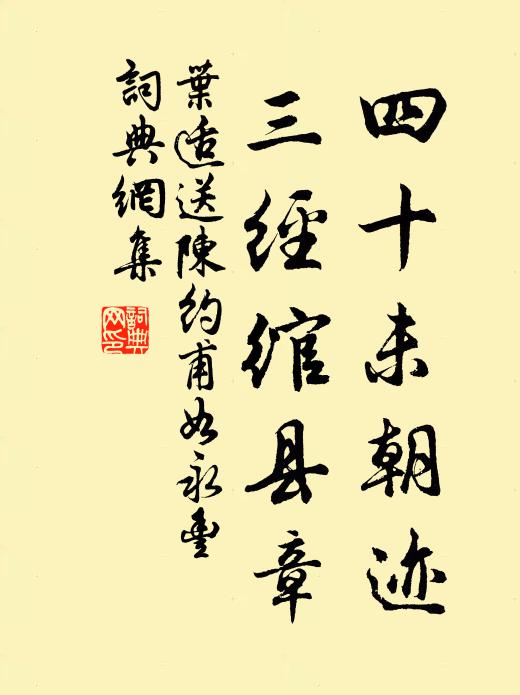 四十未朝迹
三經綰县章
葉适送陳約甫如永豐
詞典網集
詞典网印